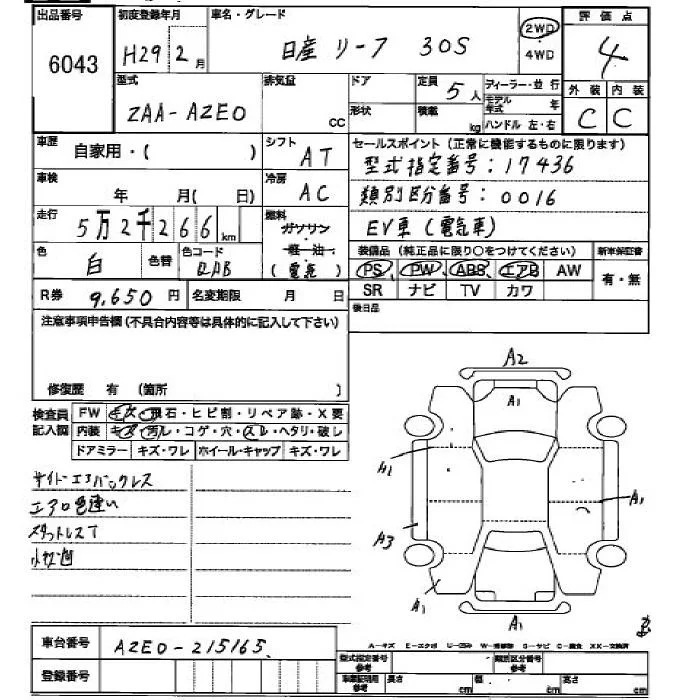 出品番号 初度登録年月 車名・グレード 評価点
6043 H29 2月 日産 リーフ 30S 2WD 4
4WD
型式 排気量 ドア 定員 5人 ディーラー・並行 外装 内装
ZAA-AZE0 cc 形状 積載 kg モデル年式 年 C C
ハンドル 左・右
車歴 自家用・( ) シフト AT セールスポイント(正常に機能するものに限ります)
型式指定番号:17436
車検 年 月( 日) 冷房 AC 類別区分番号:0016
走行 5万2千266km 燃料 ガソリン・軽油・(電気) EV車(電気車)
色 白 色替 色コード QAB 装備品(純正品に限り○をつけてください) 新車保証書
PS PW ABS エアB AW 有・無
R券 9,650円 名変期限 月 日 SR ナビ TV カワ
注意事項申告欄(不具合内容等は具体的に記入して下さい) 後日品
修復歴 有 (箇所 )
検査員記入欄 FW キズ・飛石・ヒビ割・リペア跡・X要
内装 キズ・汚レ・コゲ・穴・スレ・ヘタリ・破し
ドアミラー キズ・ワレ ホイール・キャップ キズ・ワレ
サイドエアバックレス
エアロ色違い
スタットレスT
A2
A1
A1
A1
A3
A1
A1
車台番号 AZE0-215165
登録番号
A-キズ E-エクボ U-凹み W-補修跡 S-サビ C-腐食 XX-交換済
型式指定番号 参考 類別区分番号 参考
車庫証明用 参考 長さ cm 幅 cm 高さ cm